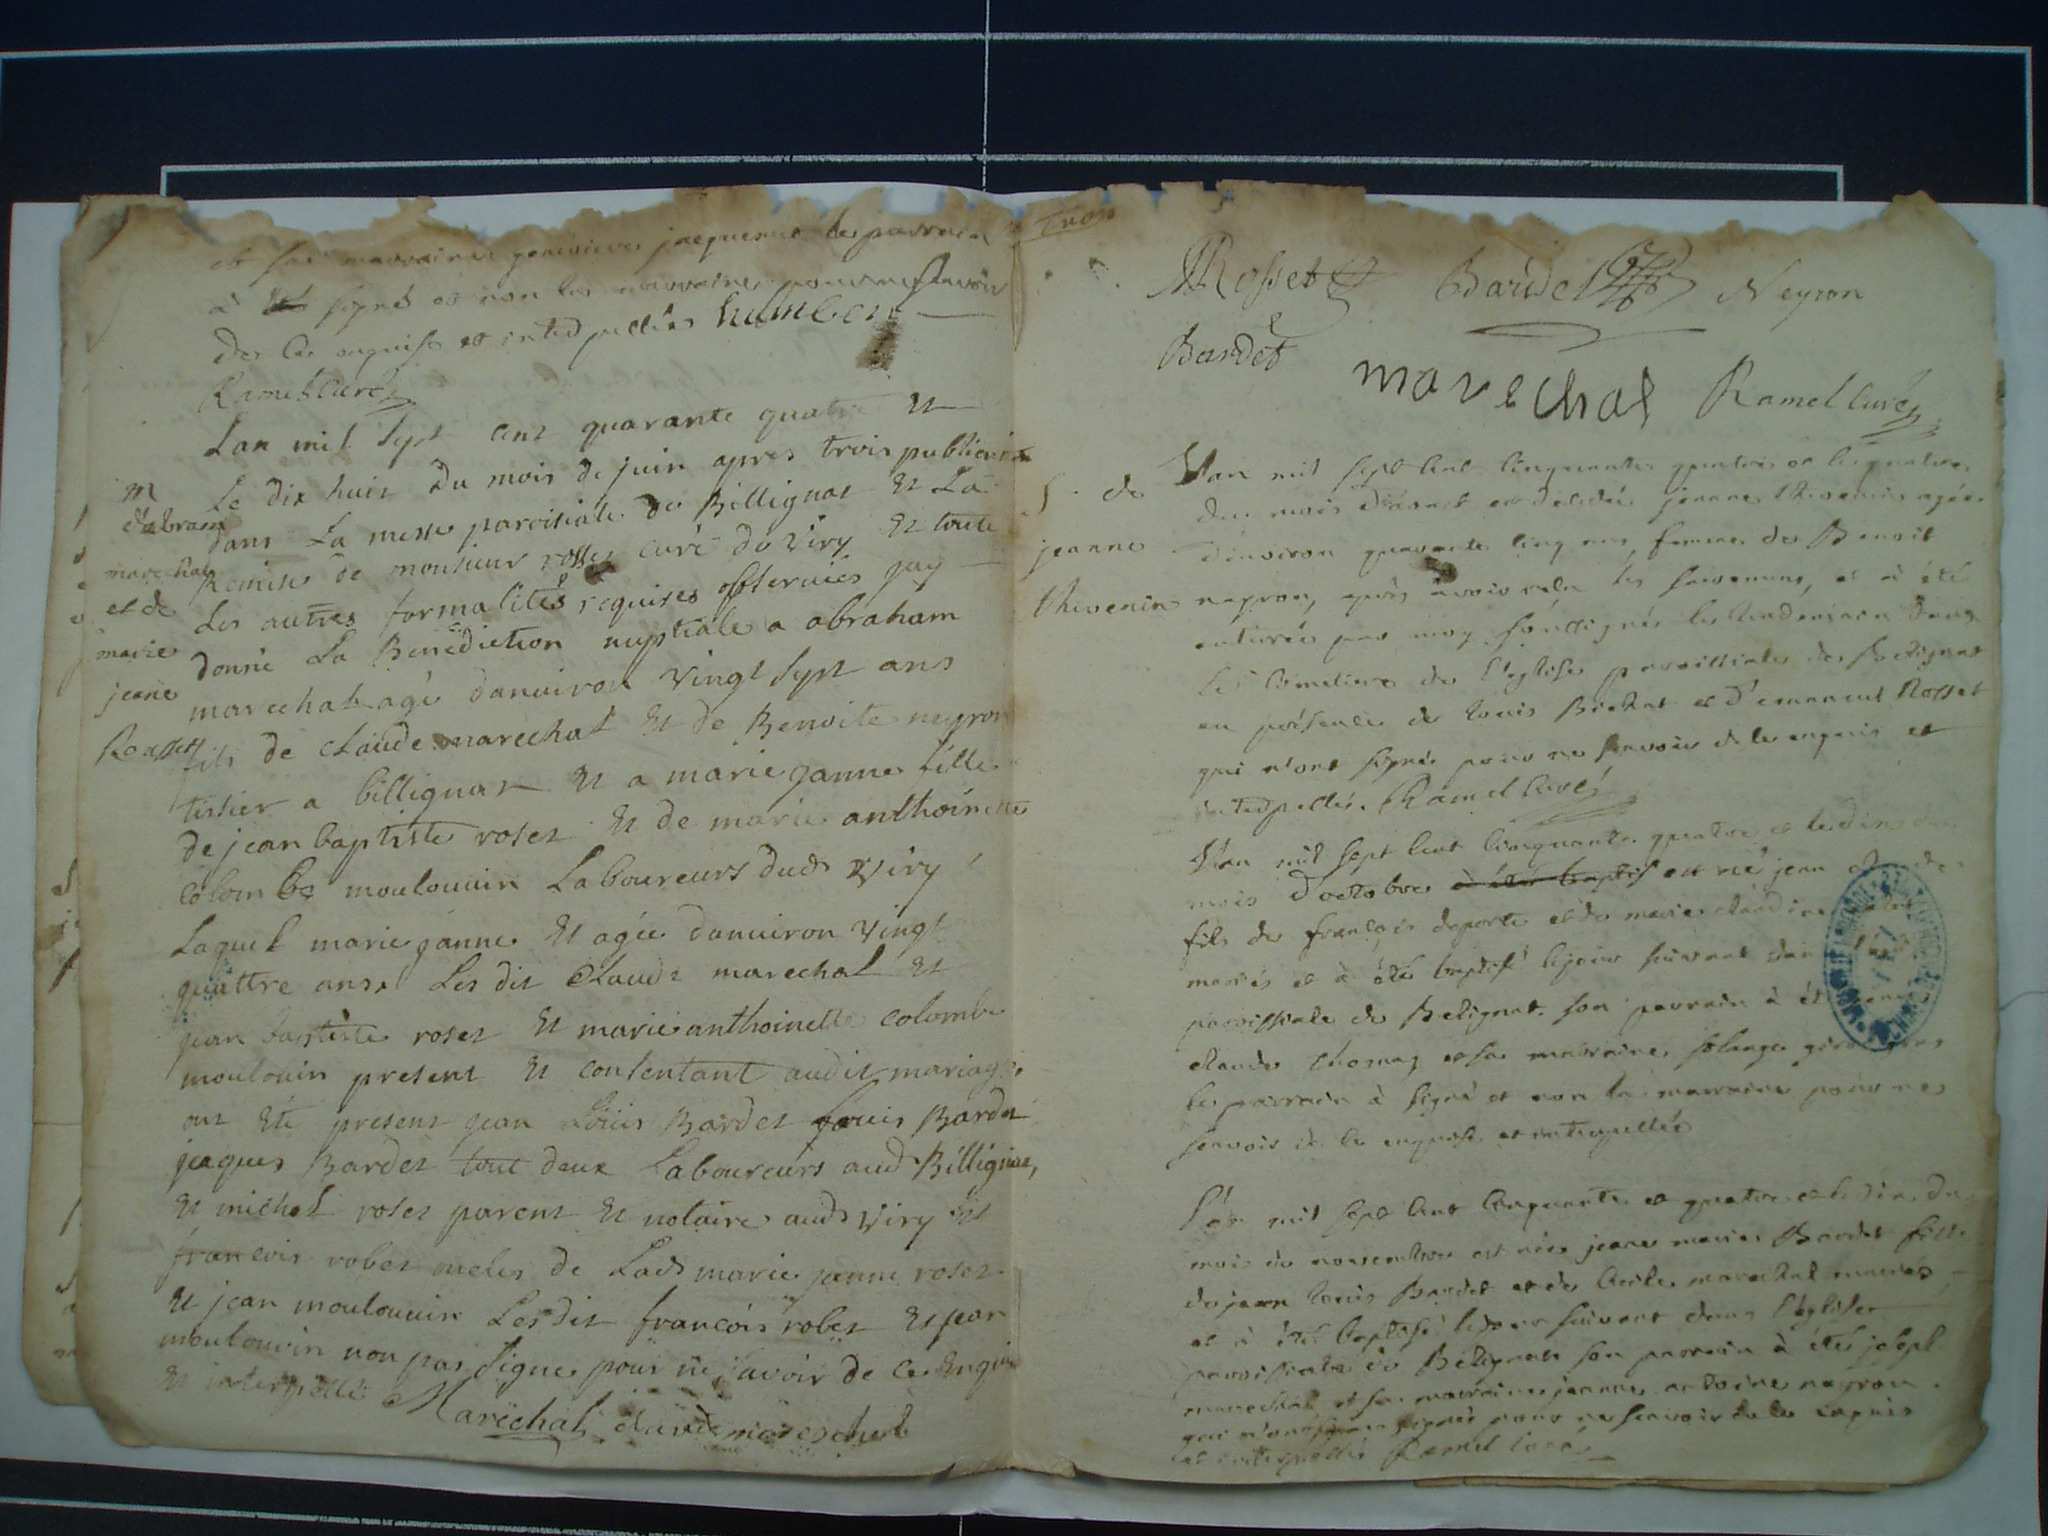 et sa marraine genevieve jacquemet le parrain
à signé et non la marraine pour ne sçavoir
de ce enquise et interpellées humbert
Ramel curé
Lan mil sept cent quarante quatre Et
Le dix huit du mois de juin apres trois publication
m
d'abram
marechal
et de
marie
jeane
Rosset
dans La messe paroisiale de Billignat Et La
Remise de monsieur rosset curé de viry Et toute
Les autres formalités requises observies jay
donné La Benediction nuptiale a abraham
marechal agé danviron vingt sept ans
fils de claude marechal Et de Benoite neyron
tissier a billignat Et a marie janne fille
de jean baptiste roset Et de marie anthoinette
colombe moulouvin Laboureurs dud viry
Laquel marie janne Et agée danviron vingt
quattre ans Les dit Claude marechal Et
jean baptiste roset Et marie anthoinette colombe
moulouin present Et consentant audit mariage
ont Eté present jean Loüis Bardet Louis Bardet
jaques Bardet tout deux Laboureurs aud Billignat,
Et michel roset parent Et notaire aud viry Et
francois robet oncles de Lad marie janne roset
Et jean moulouvin Lesdit francois robet Et jean
moulouvin non pas signe pour ne savoir de ce Enquis
Et interpellé Marechal claude mareschal
Rosset Baudet Neyron
Bardet marechal Ramel Curé
S. de
jeanne
thivenin
L'an mil sept cent cinquante quatre et le quatre
du mois d'aoust est décédée jeanne thivenin agée
d'environ quarante cinq ans, femme de Benoit
neyron, après avoir reçu les sacremens, et à été
enterrée par moy soussigné le lendemain dans
le cimetiere de l'eglise paroissiale de Belignat
en présence de Louis Bardet et d'emanuel Rosset
qui n'ont signé pour ne sçavoir de ce enquis et
interpellés. Ramel curé
L'an mil sept cent cinquante quatre et le dix du
mois d'octobre à été baptisé est né jean
fils de francois deporte et de marie claudine
mariés et à été baptisé le jour suivant dans
paroissiale de Belignat. son parrain à été
claude thomas et sa marraine
le parrain à signé et non la marraine pour ne
sçavoir de ce enquise et interpellée
L'an mil sept cent cinquante et quatre et le dix du
mois de novembre est née jeane marie Bardet fille
de jean Louis Bardet et de Cecile marechal mariés
et à été baptisé le jour suivant dans l'église
paroissiale de Belignat son parrain à été joseph
marechal et sa marraine jeanne antoine neyron
qui n'ont signé pour ne sçavoir de ce enquis
et interpellés Ramel curé